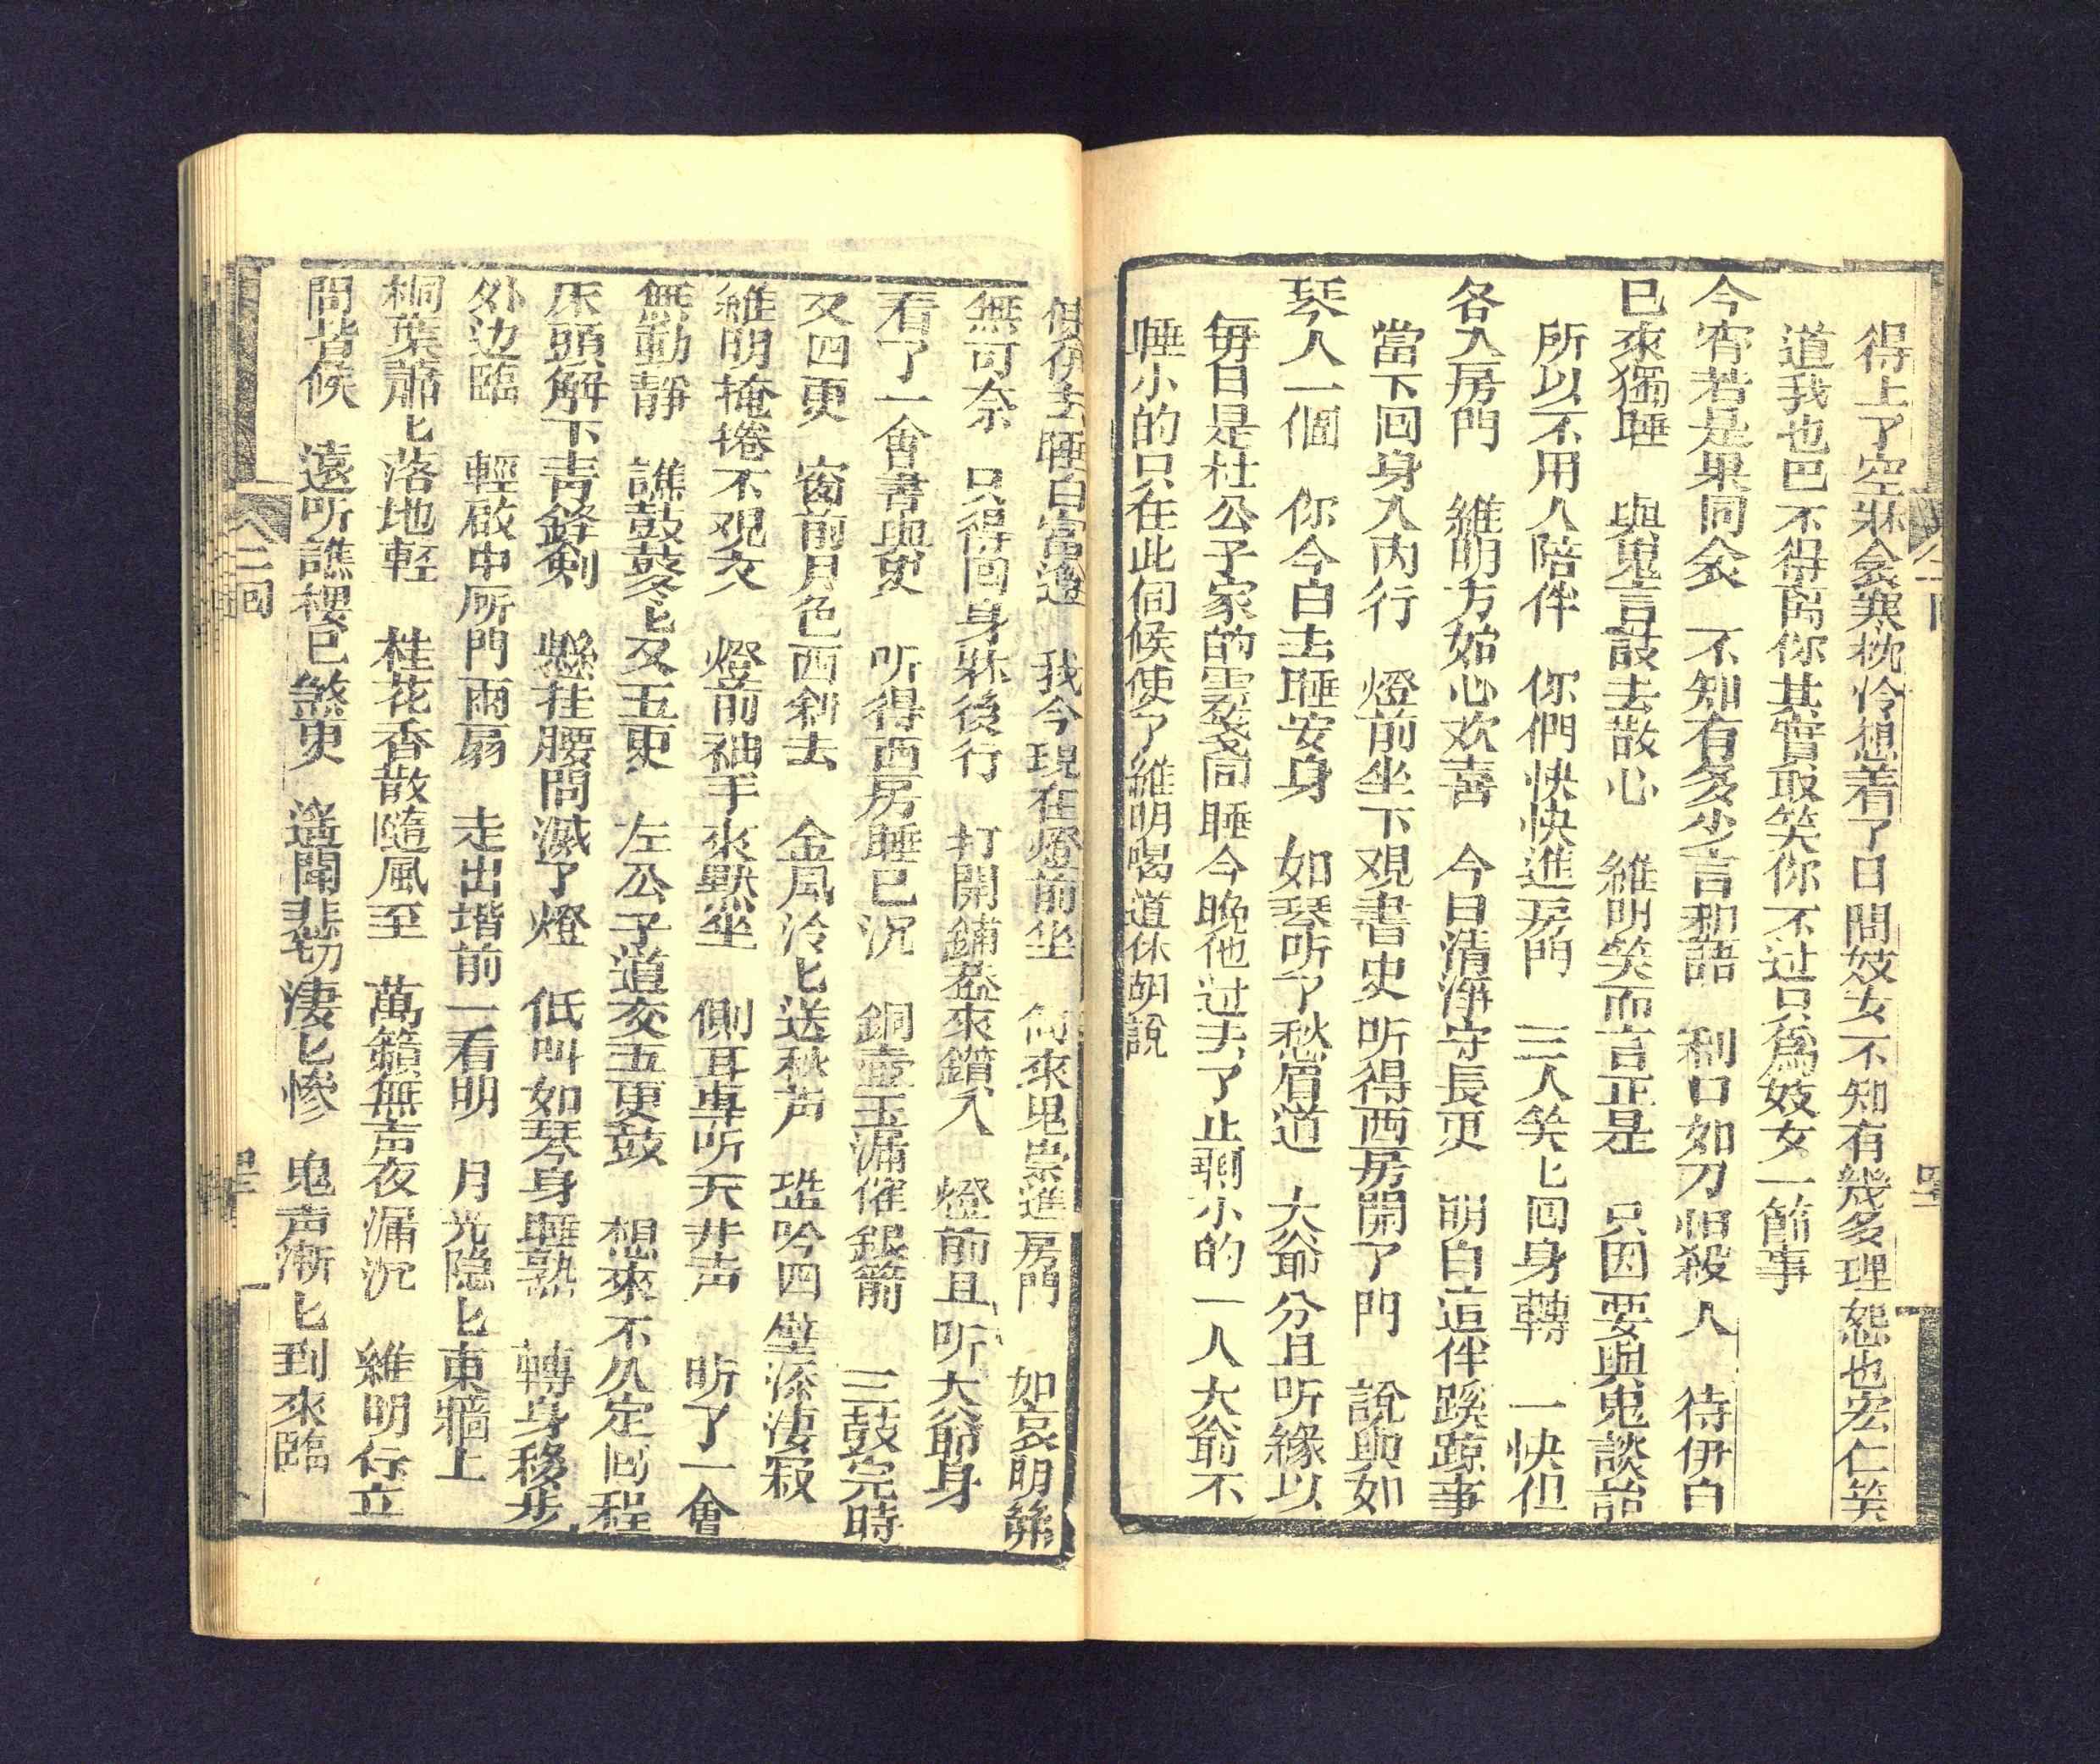 得上了空牀衾寒枕怜想着了日間妓女不知有幾多理怨也宏仁笑
道我也巴不得两你其實取笑你不过只為妓女一節事
今宵若是果同衾　不知有多少言和語　利口如刀怕殺人　待伊白
已來獨睡　與鬼言談去散心　維明笑而言正是　只因要與鬼談論
所以不用人陪伴　你們快快進房門　三人笑匕回身轉　一快但
各入房門　維明方始心欢喜　今日清淨守長更　明白這件蹊蹺事
當下回身入内行　燈前坐下观書史　听得西房開了門　說與如
琴人一個　你今白去睡安身　如琴听了愁眉道　大爺分且听緣以
每日是杜公子家的雲箋同睡今晚他过去了止剩小的一人大爺不
睡小的只在此伺候便了維明喝道休胡說
快伊去睡白當道　我今現在燈前坐　何來鬼祟進房門　如哀明
無可奈　只得回身牀後行　打開鋪蓋來鑽入　燈前且听大爺身
看了一會書與史　听得西房睡已沉　銅壺玉漏催銀箭　三鼓完時
又四更　窗前月色西斜去　金風泠匕送秋声　蛩吟四壁添淒寂
維明掩捲不观文　燈前袖手來默坐　側耳專听天井声　听了一會
無動靜　譙鼓鼕匕又五更　左公子道交五更鼓　想來不久定回程
床頭解下青鋒剣　懸挂腰間滅了燈　低叫如琴身睡熟　轉身移步
外边臨　輕啟中所門兩扇　走出堦前一看明　月光隐匕東牆上
桐葉蕭匕落地輕　桂花香散隨風至　萬籟無声夜漏沉　維明佇立
間皆候　遠听譙樓已煞更　遙聞悲切淒匕慘　鬼声漸匕到來臨
二囬